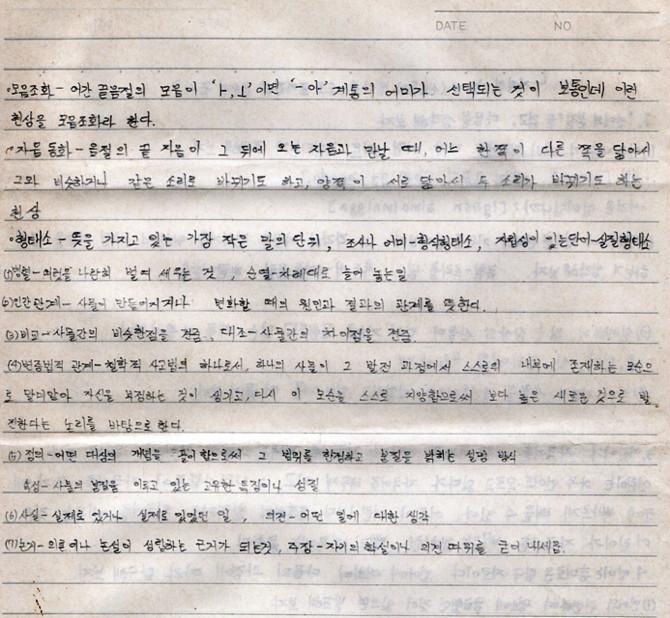 DATE NO
·모음조화 - 어간 끝음절의 모음이 'ㅏ,ㅗ' 이면 '-아' 계통의 어미가 선택되는 것이 보통인데 이런
현상을 모음조화라 한다.
·자음동화 - 음절의 끝 자음이 그 뒤에 오는 자음과 만날 때, 어느 한쪽이 다른 쪽을 닮아서
그와 비슷하거나 같은 소리로 바뀌기도 하고, 양쪽이 서로 닮아서 두 소리가 바뀌기도 하는
현상
·형태소 - 뜻을 가지고 있는 가장 작은 말의 단위, 조사나 어미-형식형태소, 자립성이 있는단어-실질형태소
(1)병렬-의견을 나란히 벌여 세우는 것, 순열-차례대로 늘어 놓는일
(2)인간관계- 사물이 만들어지거나 변화할 때의 원인과 결과의 관계를 뜻한다.
(3)비교-사물간의 비슷한점을 견줌, 대조-사물간의 차이점을 견줌
(4)변증법적 관계-철학적 사고법의 하나로서, 하나의 사물이 그 발전 과정에서 스스로의 내부에 존재하는 모순으
로 말미암아 자신을 부정하는 것이 생기고, 다시 이 모순을 스스로 지양함으로써 보다 높은 새로운 것으로 발
전한다는 논리를 바탕으로 한다.
(5) 정의-어떤 대상의 개념을 풀이함으로써 그 범위를 한정하고 본질을 밝히는 설명 방식
속성-사물의 본질을 이루고 있는 고유한 특징이나 성질
(6)사실-실제로 있거나 실제로 있었던 일, 의견-어떤 일에 대한 생각
(7)논거-의론이나 논설이 성립하는 근거가 되는것, 주장-자기의 학설이나 의견 따위를 굳이 내세움.